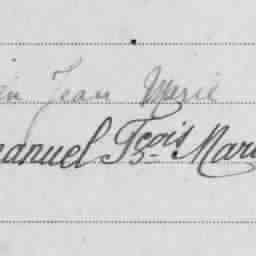 in Jean Marie
anuel Fçois Mari